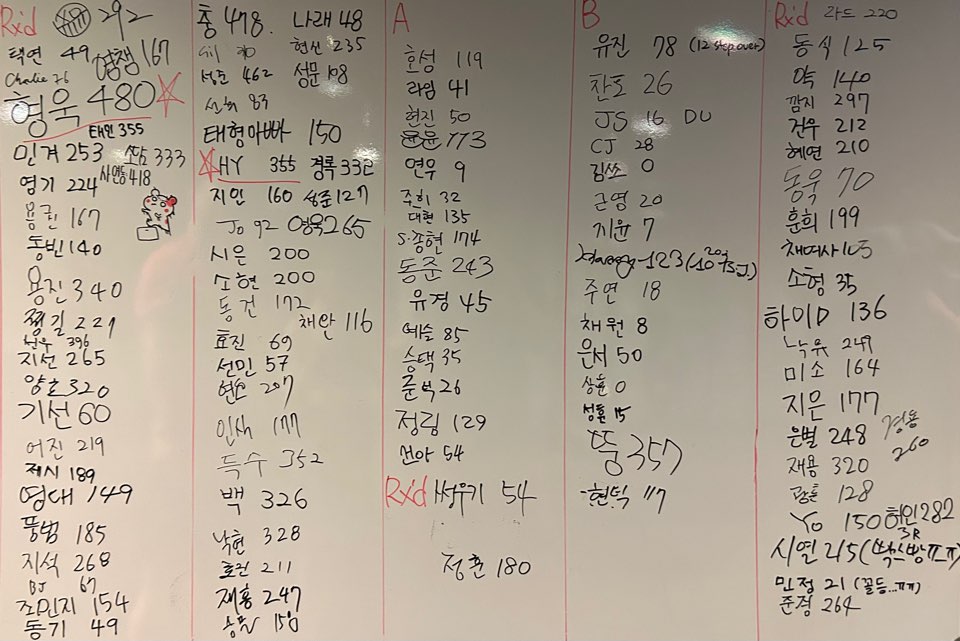 Rx'd 292
택연 49 영쟁 167
Charlie 76
형욱 480
태민 355
민겨 253 소남 333
영기 224 사연등 418
용근 167
동빈 140
용진 340
쩡길 227
선우 396
지선 265
양호 320
기선 60
어진 219
제시 189
영대 149
풍범 185
지석 268
BJ 67
조민지 154
동기 49
총 478. 나래 48
현신 235
성준 462 성문 108
선혜 83
태형아빠 150
HY 355 경록 332
지민 160 성준 127
Jo 92 영욱 265
시은 200
소현 200
동건 172
채안 116
효진 69
선민 57
현순 207
인색 177
득수 352
백 326
낙현 328
효건 211
재홍 247
승문 150
A
호성 119
라임 41
현진 50
윤문 173
연우 9
주희 32
대현 135
S.종현 174
동준 243
유경 45
예슬 85
승택 35
준혁 26
정림 129
선아 54
Rx'd 쩡우기 54
정훈 180
B
유진 78 (12 step over)
찬호 26
JS 16 DU
CJ 28
김쏘 0
근영 20
지윤 7
Harry 123
주연 18
채원 8
은서 50
상훈 0
성훈 15
뚱 357
현덕 117
Rx'd 라드 220
동식 125
약 140
깜지 297
건우 212
혜연 210
동욱 70
훈희 199
채여사 165
소형 35
하이D 136
낙유 249
미소 164
지은 177
은별 248 경동 260
재용 320
광훈 128
Yo 150 허인 282
3R
시열 215
민정 21 (꼴등...ㅠㅠ)
준정 264